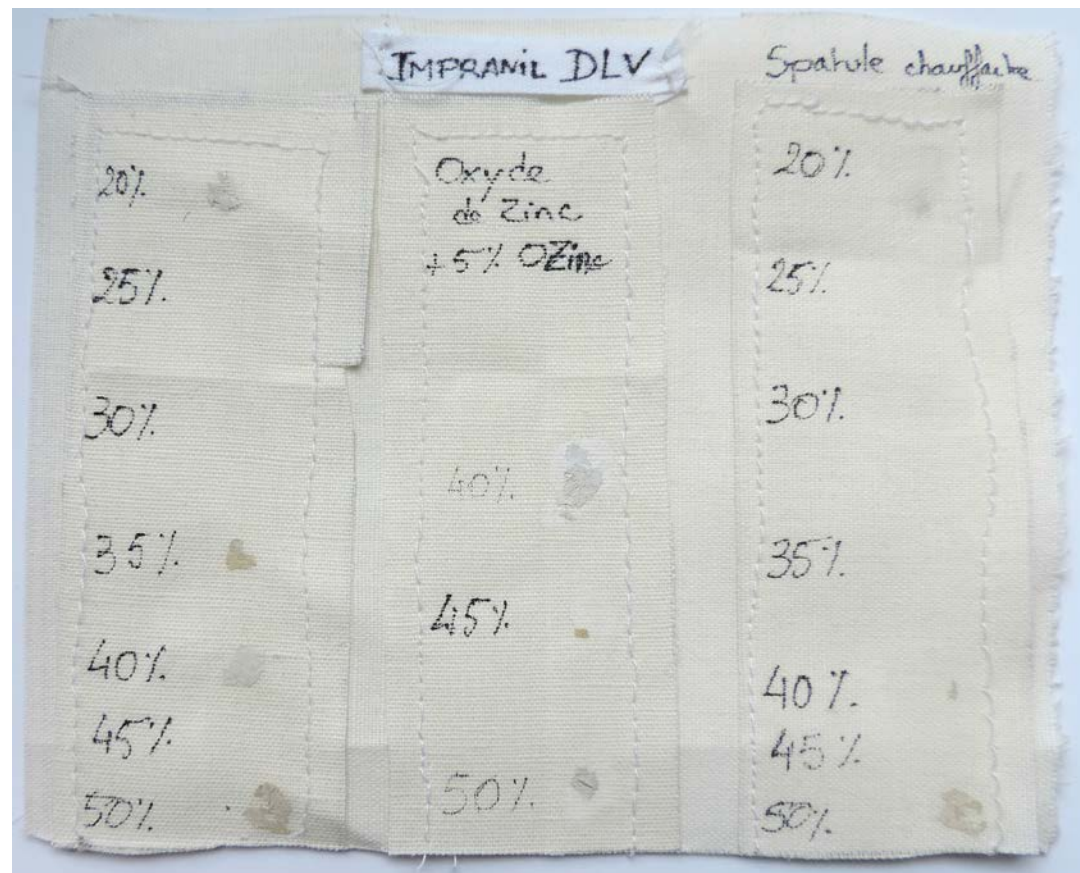 IMPRANIL DLV
Spatule chauffante
20%
25%
30%
35%
40%
45%
50%
Oxyde
de Zinc
+5% OZinc
40%
45%
50%
20%
25%
30%
35%
40%
45%
50%